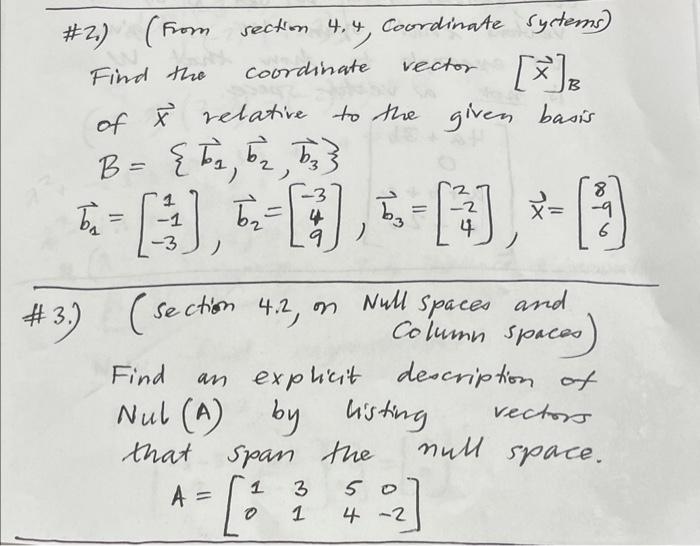 #2.) (From section 4.4, Coordinate Systems)
Find the coordinate vector [x⃗]_B
of x⃗ relative to the given basis
B = {b⃗₁, b⃗₂, b⃗₃}
b⃗₁ = [1 -1 -3], b⃗₂ = [-3 4 9], b⃗₃ = [2 -2 4], x⃗ = [8 -9 6]
#3.) (section 4.2, on Null spaces and
Column spaces)
Find an explicit description of
Nul (A) by listing vectors
that span the null space.
A = [1 3 5 0
0 1 4 -2]